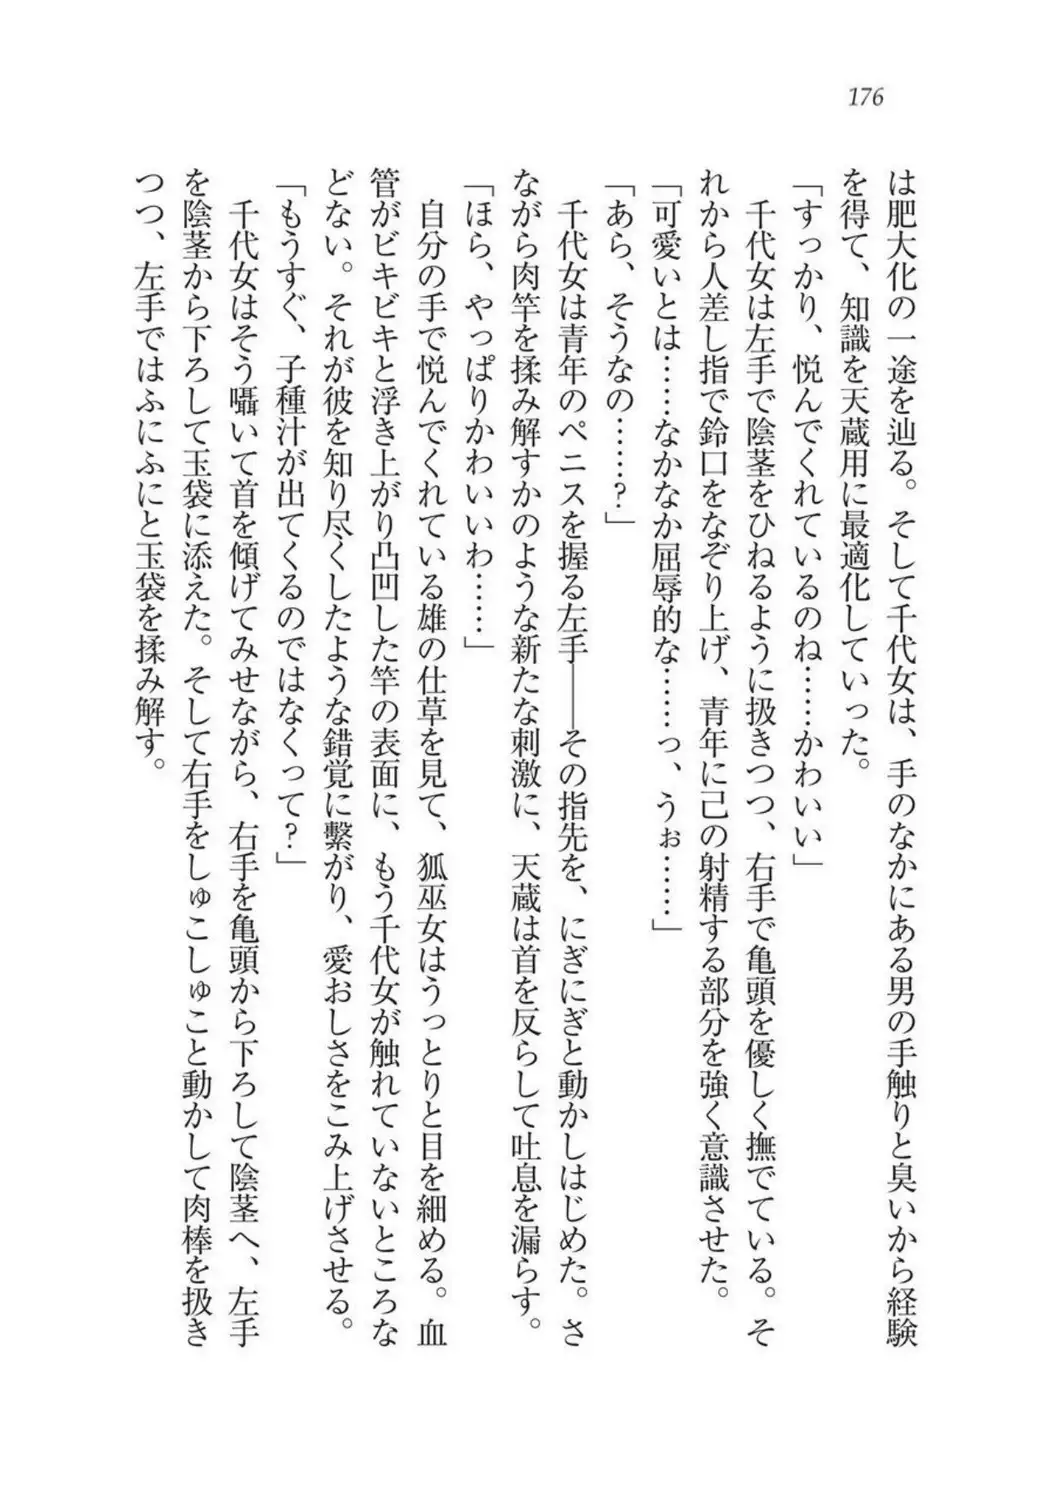 176
は肥大化の一途を辿る。そして千代女は、手のなかにある男の手触りと臭いから経験
を得て、知識を天蔵用に最適化していった。
「すっかり、悦んでくれているのね……かわいい」
千代女は左手で陰茎をひねるように扱きつつ、右手で亀頭を優しく撫でている。そ
れから人差し指で鈴口をなぞり上げ、青年に己の射精する部分を強く意識させた。
「可愛いとは……なかなか屈辱的な……っ、うぉ……」
「あら、そうなの……?」
千代女は青年のペニスを握る左手――その指先を、にぎにぎと動かしはじめた。さ
ながら肉竿を揉み解すかのような新たな刺激に、天蔵は首を反らして吐息を漏らす。
「ほら、やっぱりかわいいわ……」
自分の手で悦んでくれている雄の仕草を見て、狐巫女はうっとりと目を細める。血
管がビキビキと浮き上がり凸凹した竿の表面に、もう千代女が触れていないところな
どない。それが彼を知り尽くしたような錯覚に繋がり、愛おしさをこみ上げさせる。
「もうすぐ、子種汁が出てくるのではなくって?」
千代女はそう囁いて首を傾げてみせながら、右手を亀頭から下ろして陰茎へ、左手
を陰茎から下ろして玉袋に添えた。そして右手をしゅこしゅこと動かして肉棒を扱き
つつ、左手ではふにふにと玉袋を揉み解す。